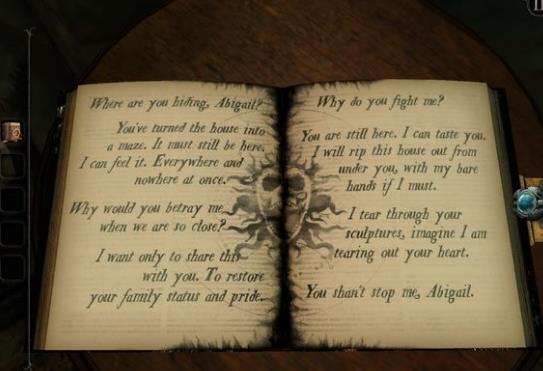 Where are you hiding, Abigail?
You've turned the house into
a maze. It must still be here.
I can feel it. Everywhere and
nowhere at once.
Why would you betray me
when we are so close?
I want only to share this
with you. To restore
your family status and pride.
Why do you fight me?
You are still here. I can taste you.
I will rip this house out from
under you, with my bare
hands if I must.
I tear through your
sculptures, imagine I am
tearing out your heart.
You shan't stop me, Abigail.